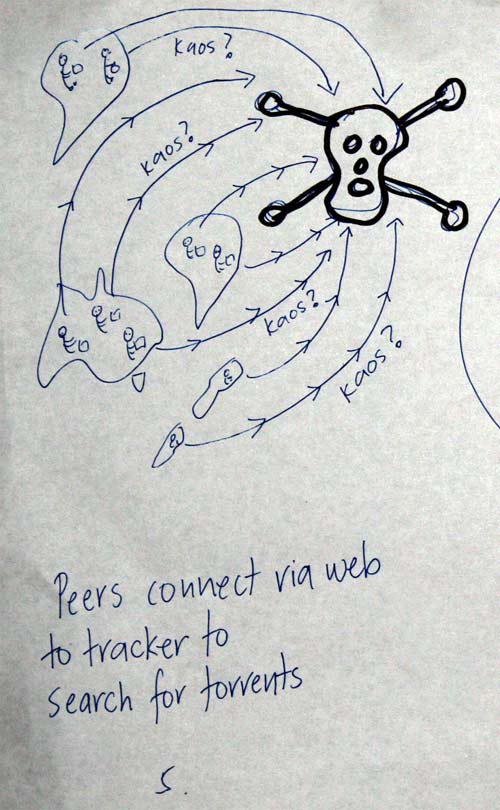 kaos?
kaos?
kaos?
kaos?
Peers connect via web
to tracker to
search for torrents
5.